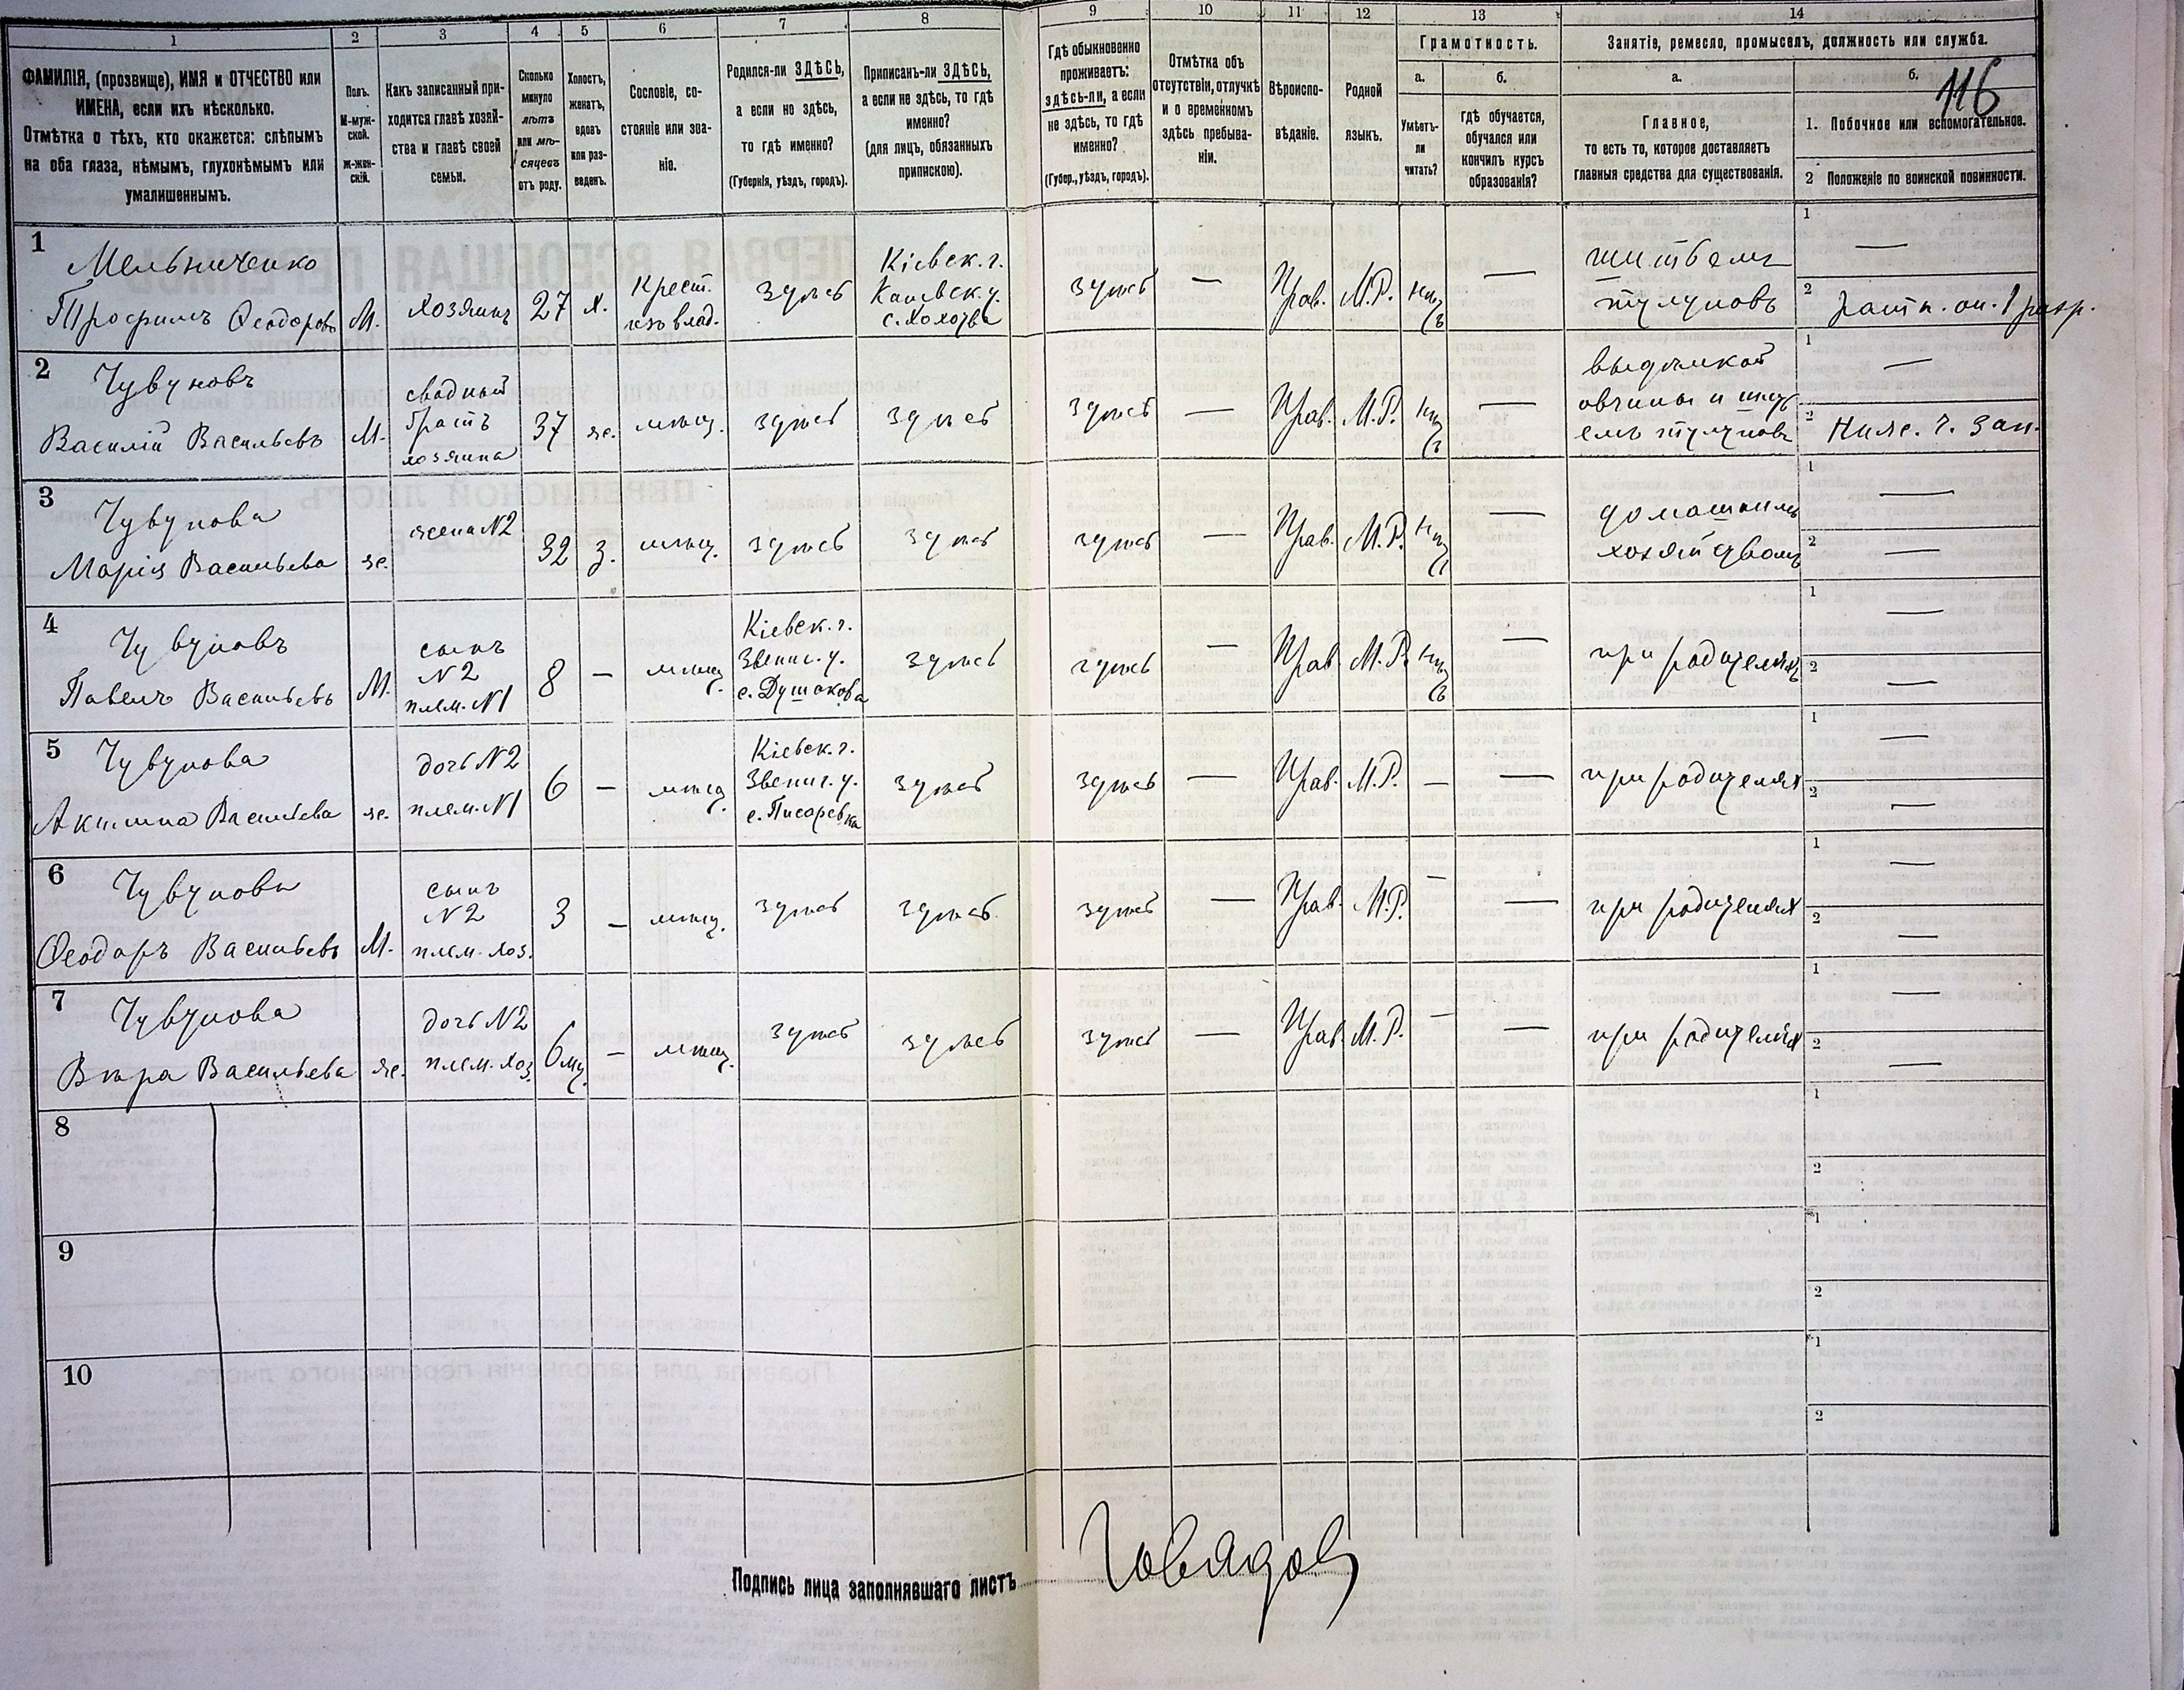 1 2 3 4 5 6 7 8 9 10 11 12 13 14
116
ФАМИЛІЯ, (прозвище), ИМЯ и ОТЧЕСТВО или
ИМЕНА, если ихъ нѣсколько.
Отмѣтка о тѣхъ, кто окажется: слѣпымъ
на оба глаза, нѣмымъ, глухонѣмымъ или
умалишеннымъ.
Полъ.
М-муж-
ской.
ж-жен-
скій.
Какъ записанный при-
ходится главѣ хозяй-
ства и главѣ своей
семьи.
Сколько
минуло
лѣтъ
или мѣ-
сяцевъ
отъ роду.
Холостъ,
женатъ,
вдовъ
или раз-
веденъ.
Сословіе, со-
стояніе или зва-
ніе.
Родился-ли ЗДѢСЬ,
а если не здѣсь,
то гдѣ именно?
(Губернія, уѣздъ, городъ).
Приписанъ-ли ЗДѢСЬ,
а если не здѣсь, то гдѣ
именно?
(для лицъ, обязанныхъ
припискою).
Гдѣ обыкновенно
проживаетъ:
здѣсь-ли, а если
не здѣсь, то гдѣ
именно?
(Губер., уѣздъ, городъ).
Отмѣтка объ
отсутствіи, отлучкѣ
и о временномъ
здѣсь пребыва-
ніи.
Вѣроиспо-
вѣданіе.
Родной
языкъ.
Грамотность.
а. б.
Умѣетъ-
ли
читать?
гдѣ обучается,
обучался или
кончилъ курсъ
образованія?
Занятіе, ремесло, промыселъ, должность или служба.
а.
Главное,
то есть то, которое доставляетъ
главныя средства для существованія.
б.
1. Побочное или вспомогательное.
2 Положеніе по воинской повинности.
1
Мельниченко
Трофимъ Ѳеодоровъ
М.
хозяинъ
27
х.
Крест.
изъ влад.
здѣсь
Кіевск. г.
Каневск. у.
с.
здѣсь
—
Прав.
М.Р.
—
шитьемъ
тулуповъ
1 —
2 ратн. оп. 1 разр.
2
Чувуновъ
Василій Васильевъ
М.
сводный
братъ
хозяина
37
же.
мѣщ.
здѣсь
здѣсь
здѣсь
—
Прав.
М.Р.
—
выдѣлкой
овчины и шить
емъ тулуповъ
1 —
2 Ниж. ч. зап.
3
Чувунова
Марія Васильева
же.
жена N2
32
з.
мѣщ.
здѣсь
здѣсь
здѣсь
—
Прав.
М.Р.
—
домашнимъ
хозяйствомъ
1 —
2 —
4
Чувуновъ
Павелъ Васильевъ
М.
сынъ
N2
плем. N1
8
—
мѣщ.
Кіевск. г.
Звениг. у.
с. Душакова
здѣсь
здѣсь
—
Прав.
М.Р.
—
при родителяхъ
1 —
2 —
5
Чувунова
Акилина Васильева
же.
дочь N2
плем. N1
6
—
мѣщ.
Кіевск. г.
Звениг. у.
с. Писаревка
здѣсь
здѣсь
—
Прав.
М.Р.
—
—
при родителях
1 —
2 —
6
Чувунова
Ѳеодоръ Васильевъ
М.
сынъ
N2
плем. хоз.
3
—
мѣщ.
здѣсь
здѣсь
здѣсь
—
Прав.
М.Р.
—
—
при родителях
1 —
2 —
7
Чувунова
Вѣра Васильева
же.
дочь N2
плем. хоз.
6 мц.
—
мѣщ.
здѣсь
здѣсь
здѣсь
—
Прав.
М.Р.
—
—
при родителях
1 —
2 —
8
1
2
9
1
2
10
1
2
Подпись лица заполнявшаго листъ